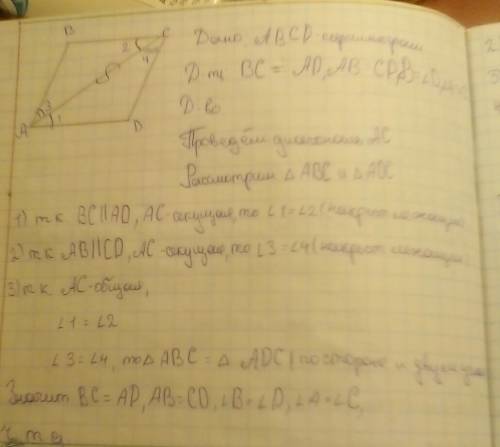 B 2 C
Дано: ABCD - параллелограмм
4
Д-ть BC = AD, AB = CD, ∠B = ∠D,
Д-во
3
A 1 D
Проведём диагональ AC
Рассмотрим △ ABC и △ ADC
1) т.к BC||AD, AC-секущая, то ∠1=∠2 (накрест лежащие)
2) т.к AB||CD, AC-секущая, то ∠3=∠4 (накрест лежащие)
3) т.к AC-общая,
∠1 = ∠2
∠3=∠4, то △ ABC = △ ADC (по стороне и двум
Значит BC = AD, AB=CD, ∠B=∠D, ∠A=∠C,
ч.т.д